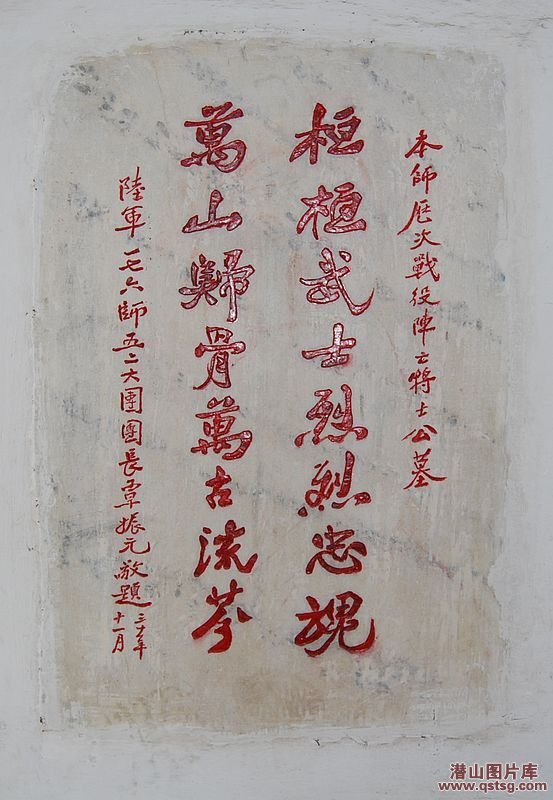 本師歷次戰役陣亡將士公墓
桓桓武士烈烈忠魄
萬山歸骨萬古流芬
陸軍一七六師五二六團團長覃振元敬題
三十年
十一月
潜山图片库
www.qstsg.com